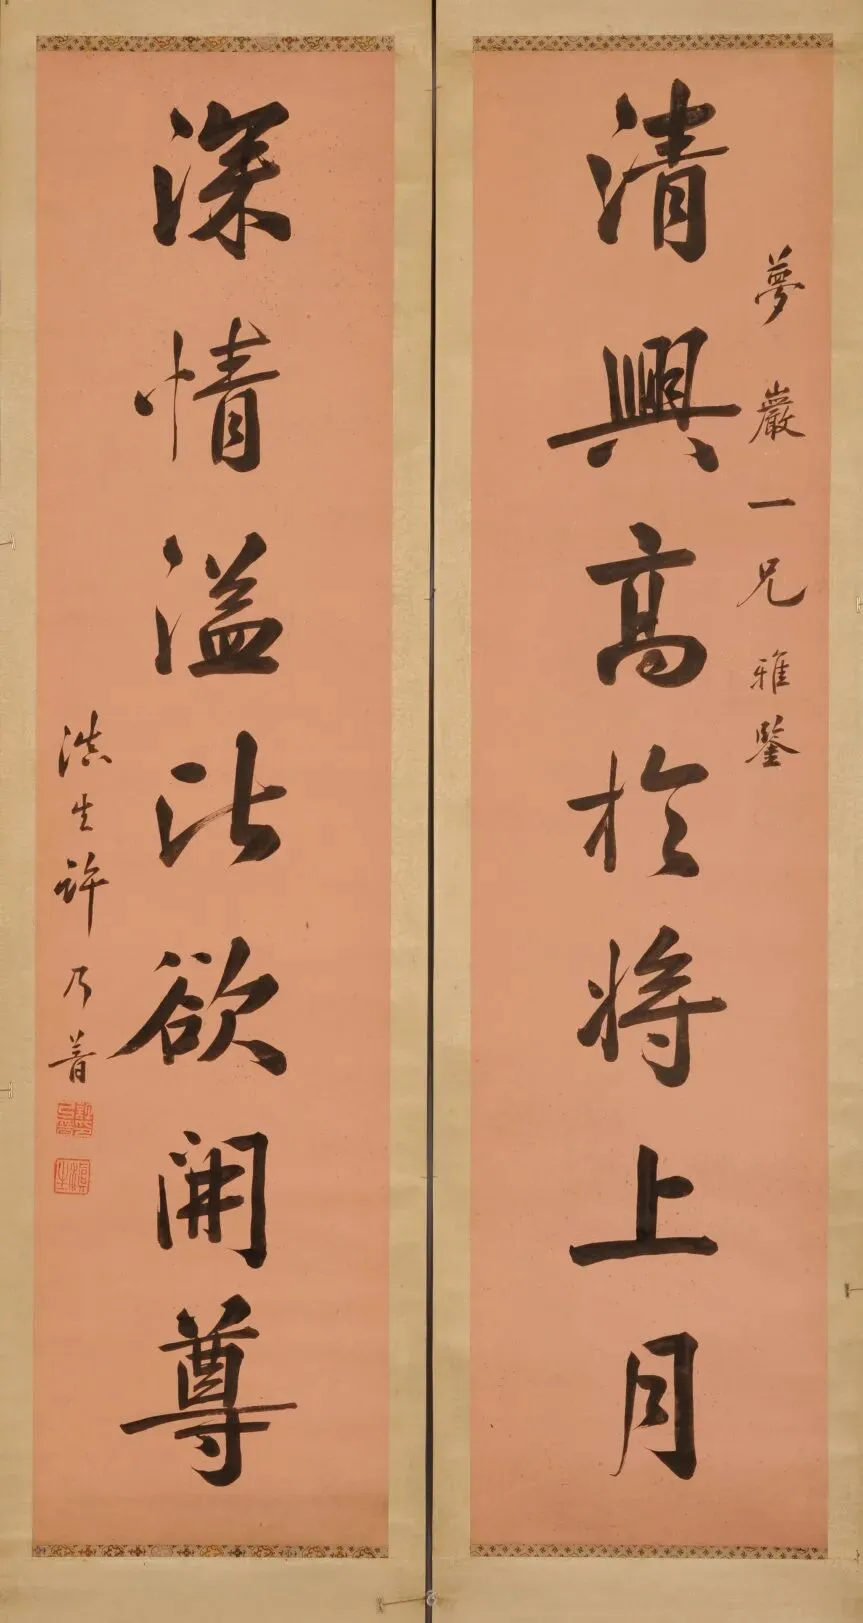 夢巖一兄雅鑒
清興高於將上月
深情溢比欲開尊
滇生許乃普
滇生